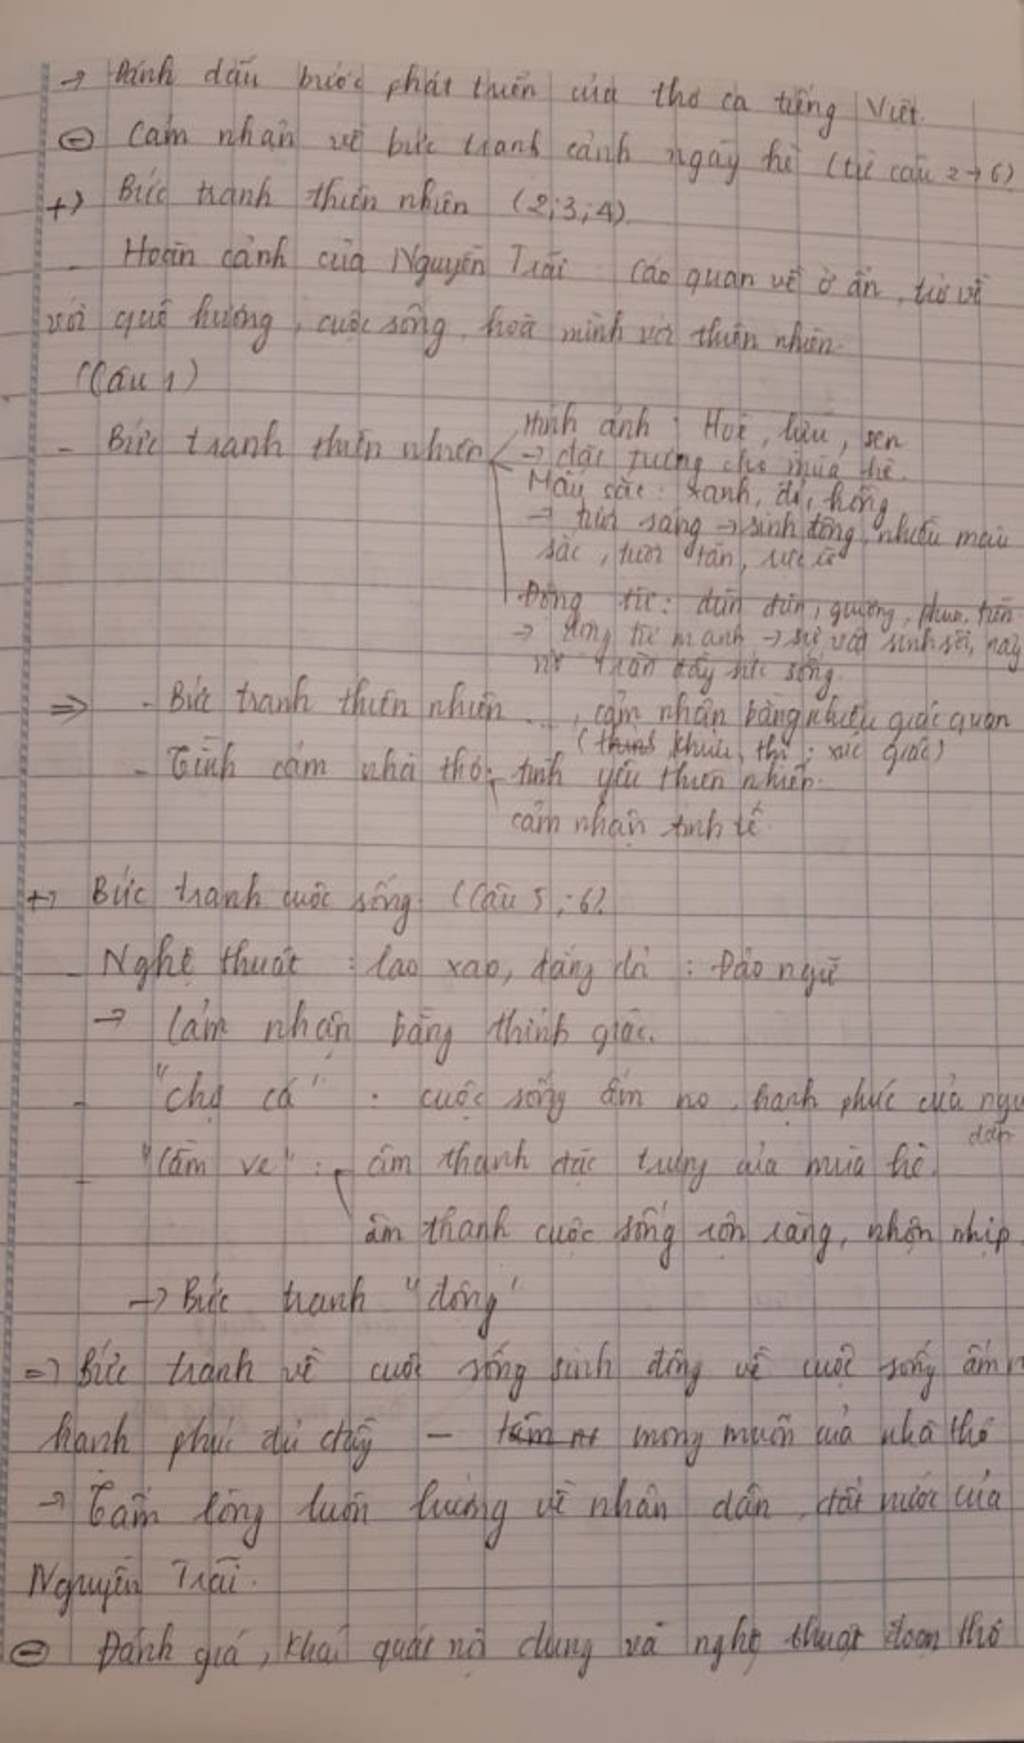 → Đánh dấu bước phát triển của thơ ca tiếng Việt.
⊖ Cảm nhận về bức tranh cảnh ngày hè (từ câu 2→6)
+) Bức tranh thiên nhiên (2;3;4)
- Hoàn cảnh của Nguyễn Trãi cáo quan về ở ẩn, trở về
với quê hương, cuộc sống, hoà mình với thiên nhiên.
(Câu 1)
- Bức tranh thiên nhiên
Hình ảnh: Hoè, lựu, sen
→ đặc trưng cho mùa hè.
Màu sắc: xanh, đỏ, hồng
→ tươi sáng → sinh động, nhiều màu
sắc, tươi tắn, rực rỡ
Động từ: đùn đùn, giương, phun, tiễn
→ động từ mạnh → sự vật sinh sôi, nảy
nở tràn đầy sức sống.
⇒ - Bức tranh thiên nhiên ..., cảm nhận bằng nhiều giác quan
(khứu, thị, xúc giác)
- Tình cảm nhà thơ: tình yêu thiên nhiên.
cảm nhận tinh tế
+) Bức tranh cuộc sống (Câu 5;6).
- Nghệ thuật: lao xao, dắng dỏi: Đảo ngữ
→ Cảm nhận bằng thính giác.
- "chợ cá": cuộc sống ấm no, hạnh phúc của người
dân
- "Cầm ve": âm thanh đặc trưng của mùa hè.
âm thanh cuộc sống rộn ràng, nhộn nhịp
→ Bức tranh "động"
⇒ Bức tranh về cuộc sống sinh động về cuộc sống ấm
hạnh phúc đủ đầy - mong muốn của nhà thơ
→ Tấm lòng luôn hướng về nhân dân, đất nước của
Nguyễn Trãi.
⊖ Đánh giá, khái quát nội dung và nghệ thuật đoạn thơ